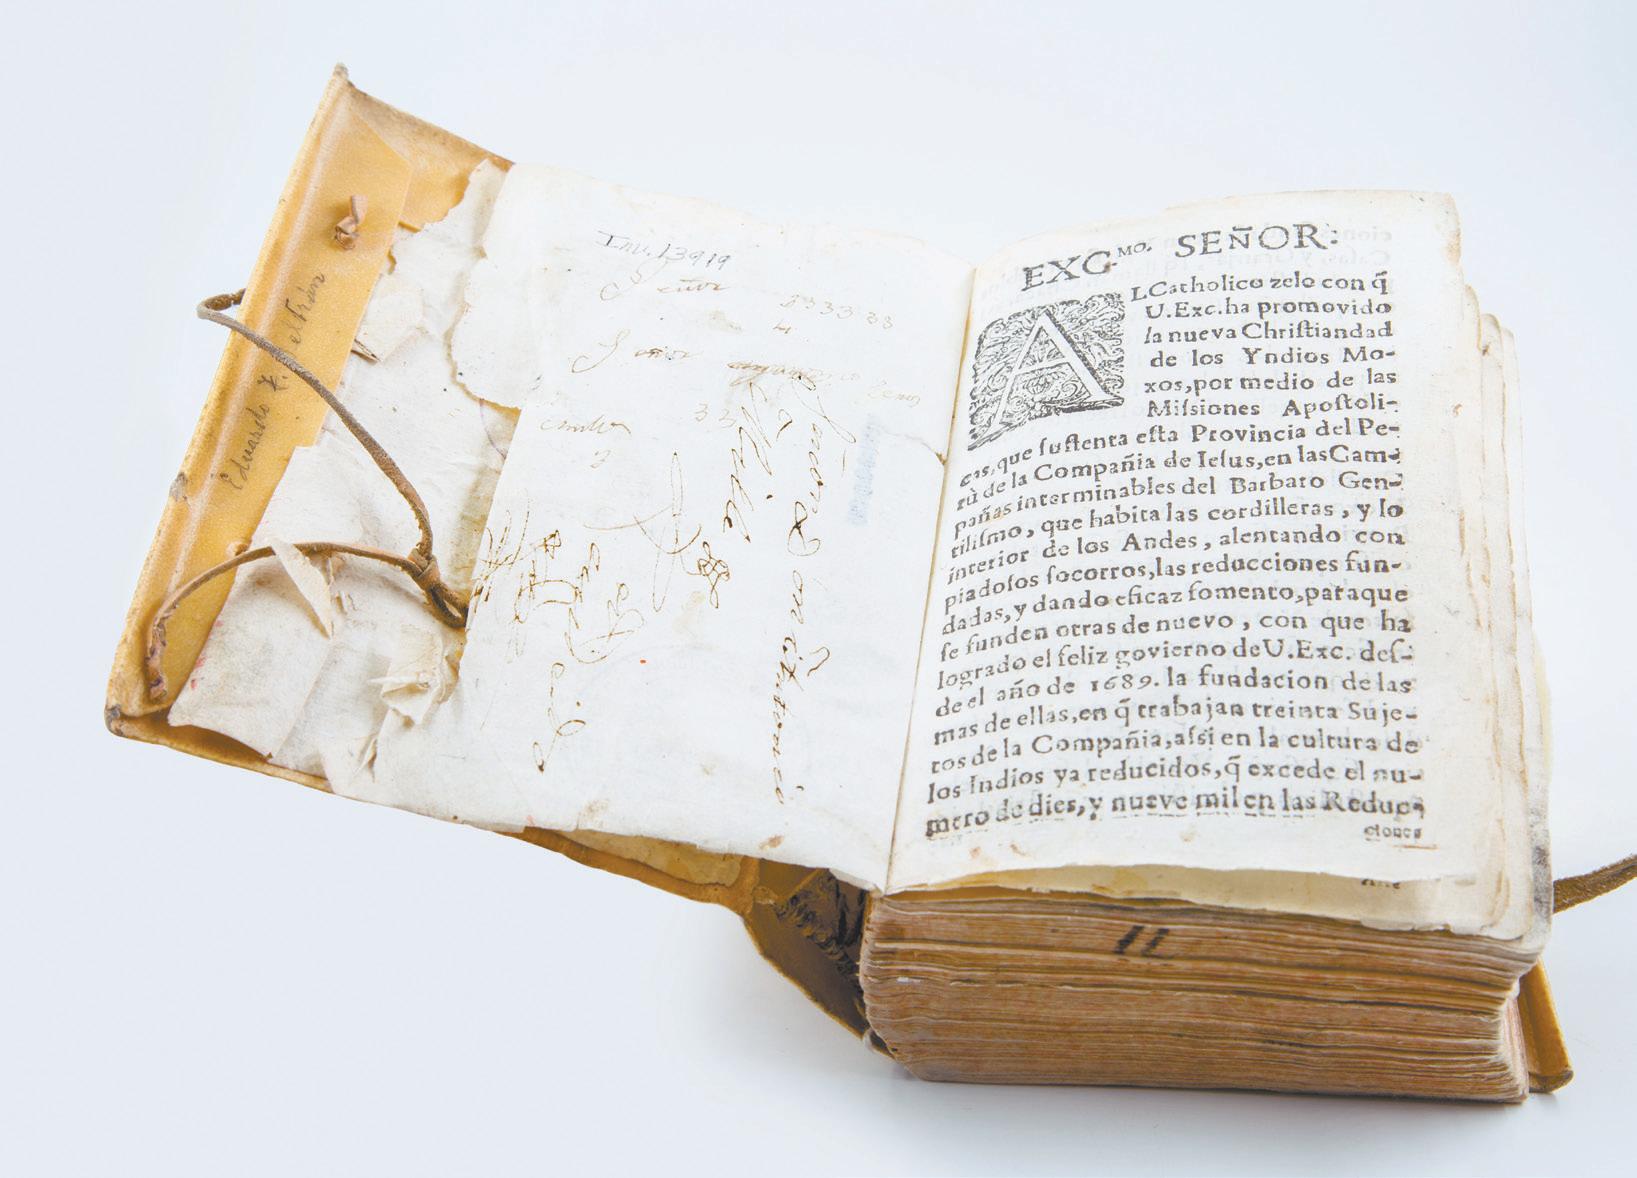 Eduardo F. Beltrán
Inv. 13919
Señor
4
Señor
33
EXC.MO. SEÑOR:
AL Catholico zelo con q̃
U.Exc. ha promovido
la nueva Chriſtiandad
de los Yndios Mo-
xos, por medio de las
Miſsiones Apoſtoli-
cas, que ſuſtenta eſta Provincia del Pe-
rù de la Compañia de Ieſus, en las Cam-
pañas interminables del Barbaro Gen-
tiliſmo, que habita las cordilleras, y lo
interior de los Andes, alentando con
piadoſos ſocorros, las reducciones fun-
dadas, y dando eficaz fomento, para que
ſe funden otras de nuevo, con que ha
logrado el feliz govierno de U.Exc. deſ-
de el año de 1689. la fundacion de las
mas de ellas, en q̃ trabajan treinta Suje-
tos de la Compañia, aſsi en la cultura de
los Indios ya reducidos, q̃ excede el nu-
mero de diez, y nueve mil en las Reduc-
ciones